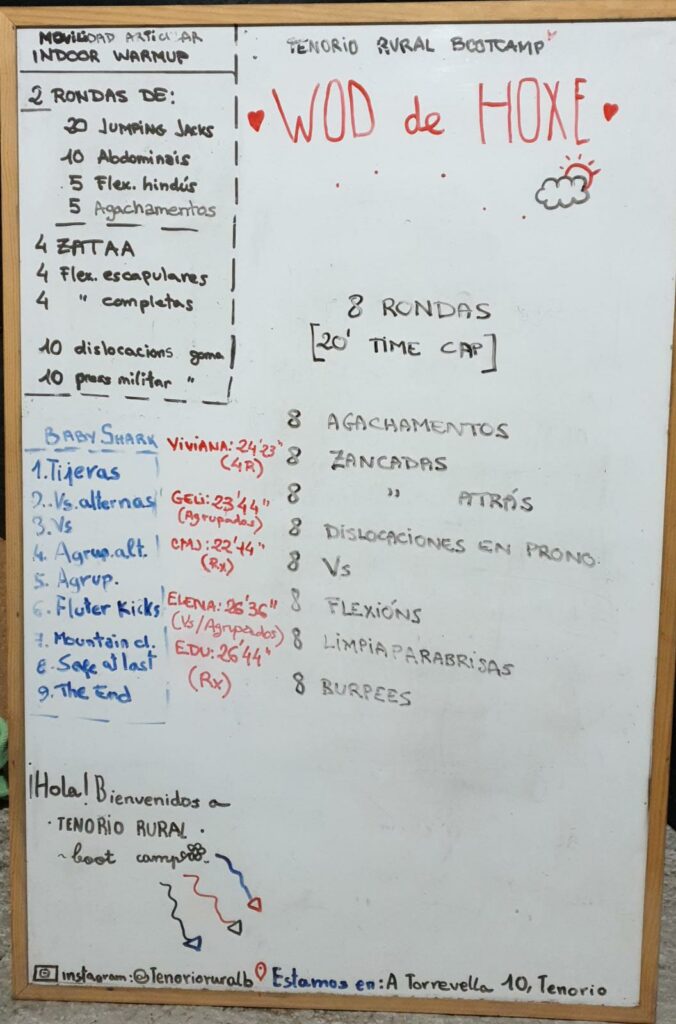 MOVILIDAD ARTICULAR
INDOOR WARMUP
2 RONDAS DE:
20 JUMPING JACKS
10 Abdominais
5 Flex. hindús
5 Agachamentos
4 ZATAA
4 Flex. escapulares
4 " completas
10 dislocacions goma
10 press militar "
TENORIO RURAL BOOTCAMP
WOD de HOXE
8 RONDAS
[20' TIME CAP]
8 AGACHAMENTOS
8 ZANCADAS
8 " ATRÁS
8 DISLOCACIONES EN PRONO
8 Vs
8 FLEXIÓNS
8 LIMPIAPARABRISAS
8 BURPEES
BABY SHARK
1. Tijeras
2. Vs. alternas
3. Vs
4. Agrup. alt.
5. Agrup.
6. Fluter Kicks
7. Mountain cl.
8. Safe at last
9. The End
VIVIANA: 24'23"
(4R)
GELI: 23'44"
(Agrupados)
CMJ: 22'14"
(Rx)
ELENA: 26'36"
(Vs/Agrupados)
EDU: 26'44"
(Rx)
¡Hola! Bienvenidos a
· TENORIO RURAL ·
~ boot camp
instagram: @Tenorioruralb
Estamos en: A Torrevella 10, Tenorio